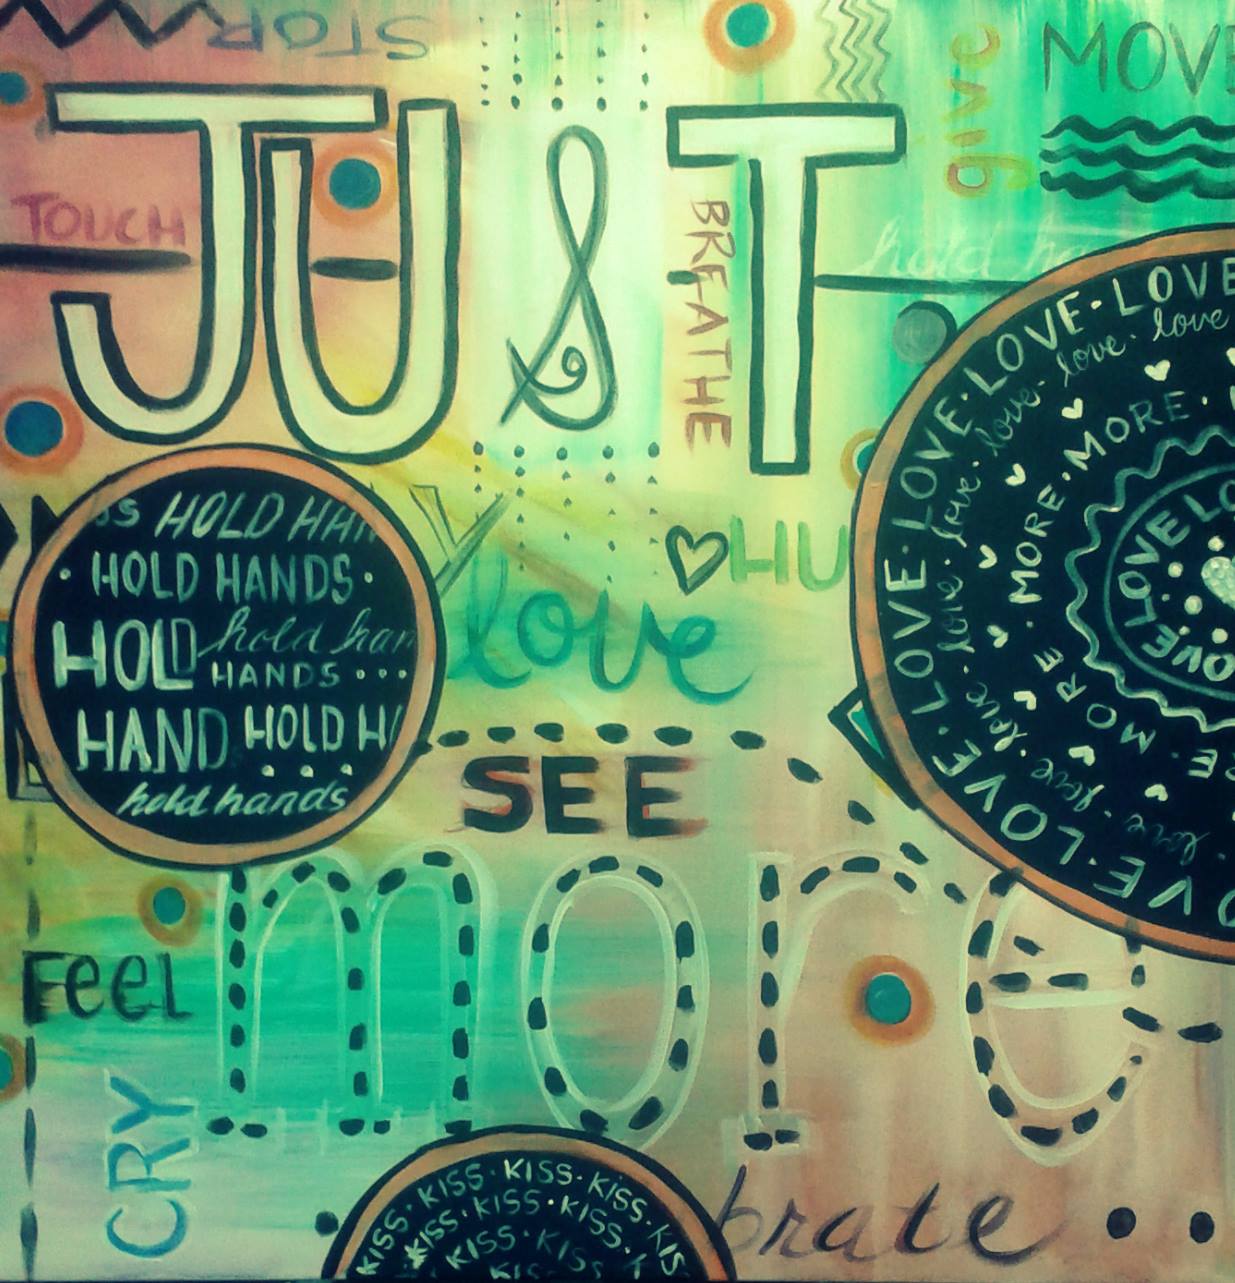 STORY
MOVE
give
JUST
TOUCH
BREATHE
hold ha
LOVE · LOVE · LOVE · LOVE · LOVE · LOVE · LOVE · LOVE
love · love · love · love · love · love · love · love
MORE · MORE · MORE · MORE
LOVE LOVE LOVE
HOLD HAN
· HOLD HANDS ·
HOLD hold han
HANDS ...
HAND HOLD H
hold hands
HU
love
SEE
more
FEEL
CRY
KISS · KISS · KISS · KISS · KIS
KISS · KISS · KISS · K
KISS · KIS
brate ..